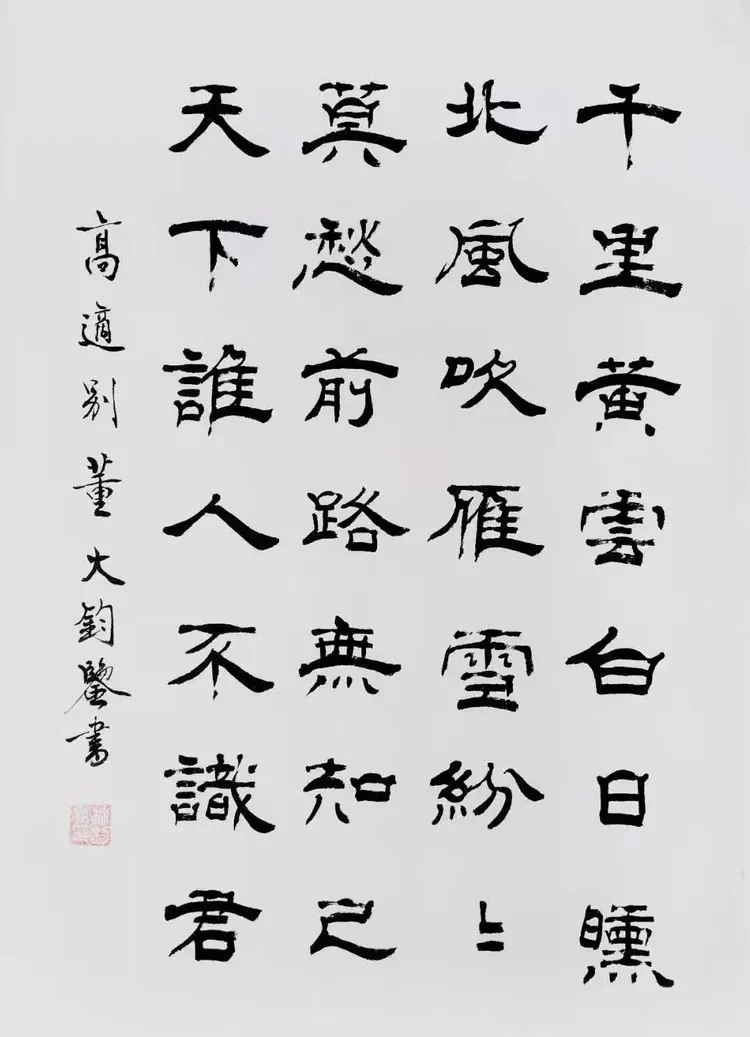 千里黃雲白日曛
北風吹雁雪紛〻
莫愁前路無知己
天下誰人不識君
高適別董大鈞鑒書